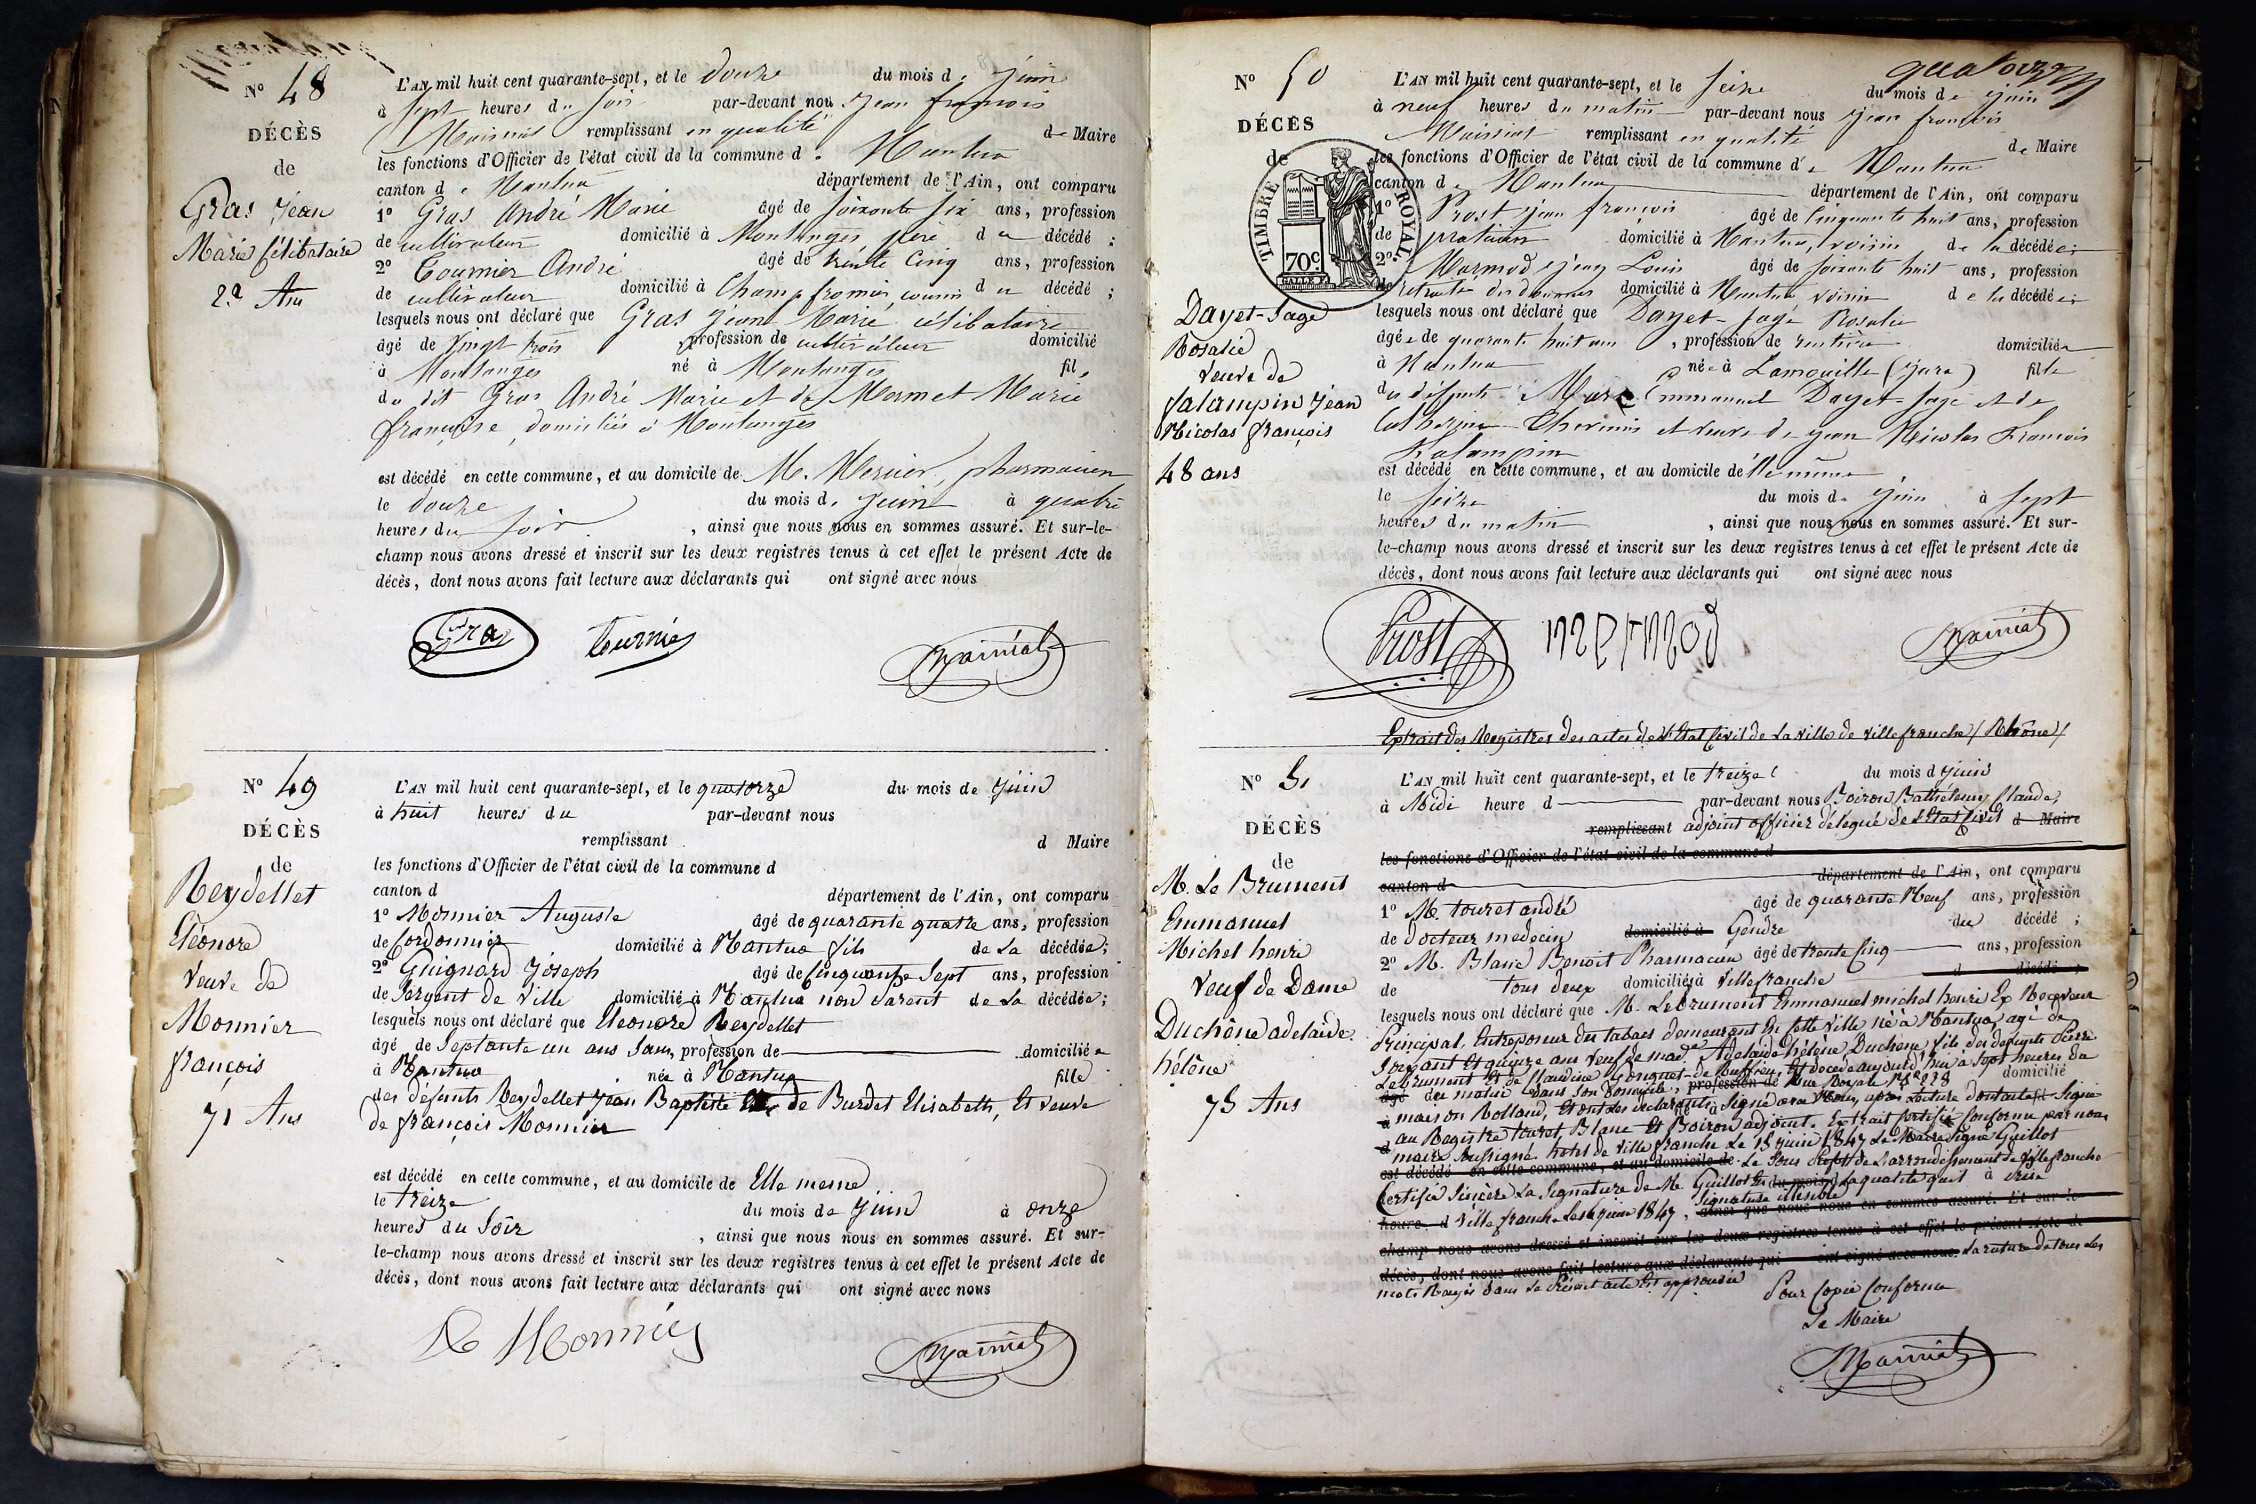 N° 48
DÉCÈS
de
Gras Jean
Marie Célibataire
Ans
L'AN mil huit cent quarante-sept, et le douze du mois de juin
à sept heures du soir par-devant nous Jean françois
remplissant en qualité de Maire
les fonctions d'Officier de l'état civil de la commune de Nantua
canton de Nantua département de l'Ain, ont comparu
1° Gras André Marie âgé de soixante six ans, profession
de cultivateur domicilié à Montanges père du décédé ;
2° Tournier André âgé de trente cinq ans, profession
de cultivateur domicilié à Champfromier, cousin du décédé ;
lesquels nous ont déclaré que Gras Jean Marie célibataire
âgé de vingt trois , profession de cultivateur domicilié
à Montanges né à Montanges fils
du dit Gras André Marie et de Mermet Marie
françoise domiciliés à Montanges
est décédé en cette commune, et au domicile de M. Mercier, pharmacien
le douze du mois de juin à quatre
heures du soir , ainsi que nous nous en sommes assuré. Et sur-le-
champ nous avons dressé et inscrit sur les deux registres tenus à cet effet le présent Acte de
décès, dont nous avons fait lecture aux déclarants qui ont signé avec nous
Gras Tournier
N° 49
DÉCÈS
de
Reydellet
Eléonore
Veuve de
Monnier
françois
71 Ans
L'AN mil huit cent quarante-sept, et le quatorze du mois de juin
à huit heures du par-devant nous
remplissant d Maire
les fonctions d'Officier de l'état civil de la commune d
canton d département de l'Ain, ont comparu
1° Monnier Auguste âgé de quarante quatre ans, profession
de Cordonnier domicilié à Nantua fils de la décédée;
2° Guignard Joseph âgé de Cinquante Sept ans, profession
de Sergent de Ville domicilié à Nantua non parent de la décédée;
lesquels nous ont déclaré que Eléonore Reydellet
âgé de Septante un ans Sans profession de domiciliée
à Nantua née à Nantua fille
des défunts Reydellet Jean Baptiste Et de Burdet Elisabeth, Et veuve
de françois Monnier
est décédé en cette commune, et au domicile de Elle meme
le treize du mois de juin à onze
heures du Soir , ainsi que nous nous en sommes assuré. Et sur-
le-champ nous avons dressé et inscrit sur les deux registres tenus à cet effet le présent Acte de
décès, dont nous avons fait lecture aux déclarants qui ont signé avec nous
Monnier
quatorze
N° 50
DÉCÈS
de
TIMBRE ROYAL
70c
Dayet-Jage
Rosalie
Veuve de
Jalampin Jean
Nicolas françois
48 ans
L'AN mil huit cent quarante-sept, et le seize du mois de juin
à neuf heures du matin par-devant nous Jean françois
remplissant en qualité de Maire
les fonctions d'Officier de l'état civil de la commune de Nantua
canton de Nantua département de l'Ain, ont comparu
1° Prost Jean françois âgé de Cinquante huit ans, profession
de praticien domicilié à Nantua, voisin de la décédée;
2° Mermod Jean Louis âgé de soixante huit ans, profession
de retraité des douanes domicilié à Nantua voisin de la décédée;
lesquels nous ont déclaré que Dayet-Jage Rosalie
âgée de quarante huit ans , profession de rentière domiciliée
à Nantua née à Lamouille (Jura) fille
des défunts Marc Emmanuel Dayet-Jage et de
Catherine Thevenin et veuve de Jean Nicolas François
Jalampin
est décédé en cette commune, et au domicile de Elle même
le seize du mois de juin à sept
heures du matin , ainsi que nous nous en sommes assuré. Et sur-
le-champ nous avons dressé et inscrit sur les deux registres tenus à cet effet le présent Acte de
décès, dont nous avons fait lecture aux déclarants qui ont signé avec nous
Prost mermod
Extrait des Registres des actes de l'Etat Civil de La Ville de Villefranche (Rhône)
N° 51
DÉCÈS
de
M. Le Brument
Emmanuel
Michel henri
Veuf de Dame
Duchêne adelaide
hélène
75 Ans
L'AN mil huit cent quarante-sept, et le treize du mois d juin
à Midi heure d par-devant nous Boiron Barthelemy Claude,
remplissant adjoint officier délégué de l'Etat Civil d Maire
les fonctions d'Officier de l'état civil de la commune d
canton d département de l'Ain, ont comparu
1° M. touret andré âgé de quarante Neuf ans, profession
de Docteur medecin domicilié à Gendre du décédé ;
2° M. Blanc Benoit Pharmacien âgé de trente Cinq ans, profession
de tous deux domiciliés à Villefranche d décédé ;
lesquels nous ont déclaré que M. Lebrument Emmanuel michel henri Ex Receveur
Principal Entreposeur des tabacs demeurant En Cette Ville né à Nantua, agé de
Soixante Et quinze ans veuf de made Adelaide hélène Duchene fils des defunts Pierre
Lebrument Et de Claudine Gonguet de Buffreu, Est décédé aujourd'hui à Sept heures du
âgé du matin dans Son domicile, profession de Rue Royale N° 228 domicilié
à maison Rolland, Et ont Les déclarants Signé avec Nous, après Lecture dont acte Signé
au Registre touret, Blanc Et Boiron adjoint. Extrait Certifié Conforme par nous
maire Soussigné hotel de Ville franche Le 15 juin 1847 Le Maire Signé Guillot
est décédé en cette commune, et au domicile de Le Sous Préfet de l'arrondissement de Villefranche
Certifie Sincère La Signature de M. Guillot Et du mois d La qualité qu'il à
Signature illisible
heure d Villefranche Le 16 juin 1847, ainsi que nous nous en sommes assuré. Et sur-le-
champ nous avons dressé et inscrit sur les deux registres tenus à cet effet le présent Acte de
décès, dont nous avons fait lecture aux déclarants qui ont signé avec nous La rature de tous Les
mots Rayés dans Le Présent acte Est approuvée
Pour Copie Conforme
Le Maire